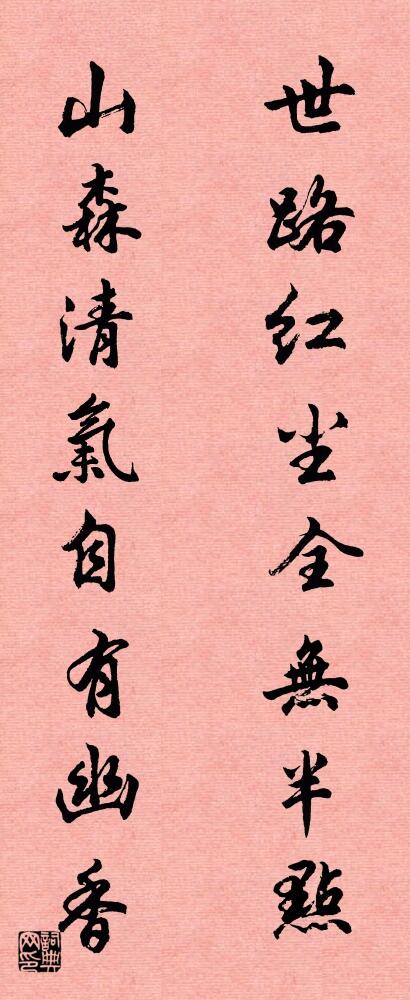 世路红尘全無半點
山森清氣自有幽香
詞典网印